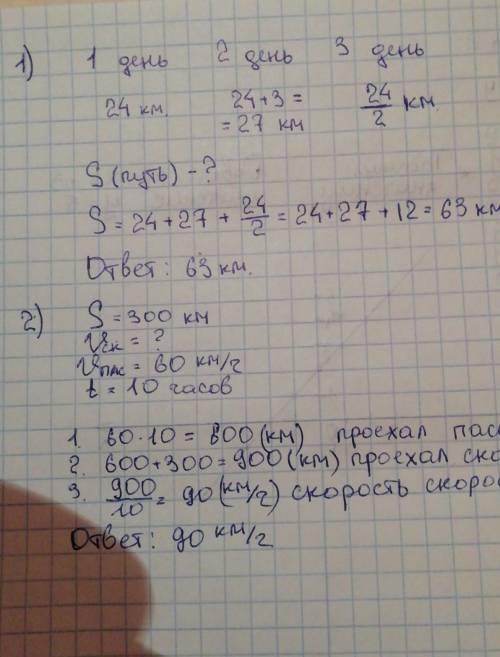 1) 1 день 2 день 3 день
24 км. 24+3= 24/2 км.
=27 км
S (путь) - ?
S = 24+27+24/2 = 24+27+12 = 63 км
Ответ: 63 км.
2) S = 300 км
Vск = ?
Vпас = 60 км/ч
t = 10 часов
1. 60·10 = 600 (км) проехал пас
2. 600+300=900 (км) проехал ско
3. 900/10 = 90 (км/ч) скорость скоро
Ответ: 90 км/ч